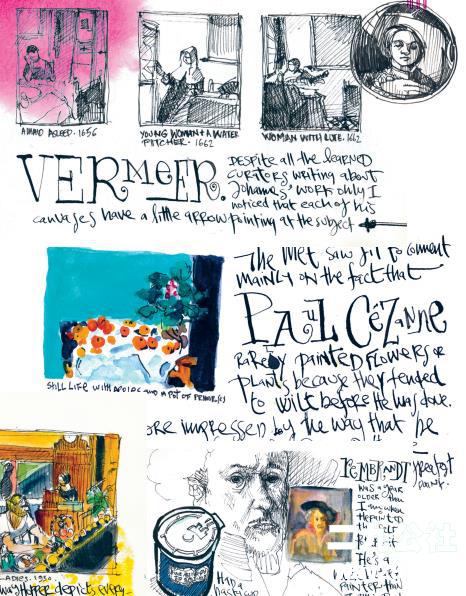 A MAID ASLEEP. 1656
YOUNG WOMAN + A WATER
PITCHER. 1662
WOMAN WITH LUTE. 1662
VERMEER.
DESPITE all the learned
curators writing about
Johannes' work only I
noticed that each of his
canvases have a little arrow pointing at the subject
The Met saw fit to comment
mainly on the fact that
PAUL CéZanne
RaRely painted flowers or
plants because they tended
to wilt before he was done.
ore impressed by the way that he
STILL LIFE WITH APPLES AND A POT OF PRIMROSES
REMBRANDT
was a year
older than
I am when
He painted
He's a
painter than
Had a
ADIES. 1930.
way Hopper depicts every